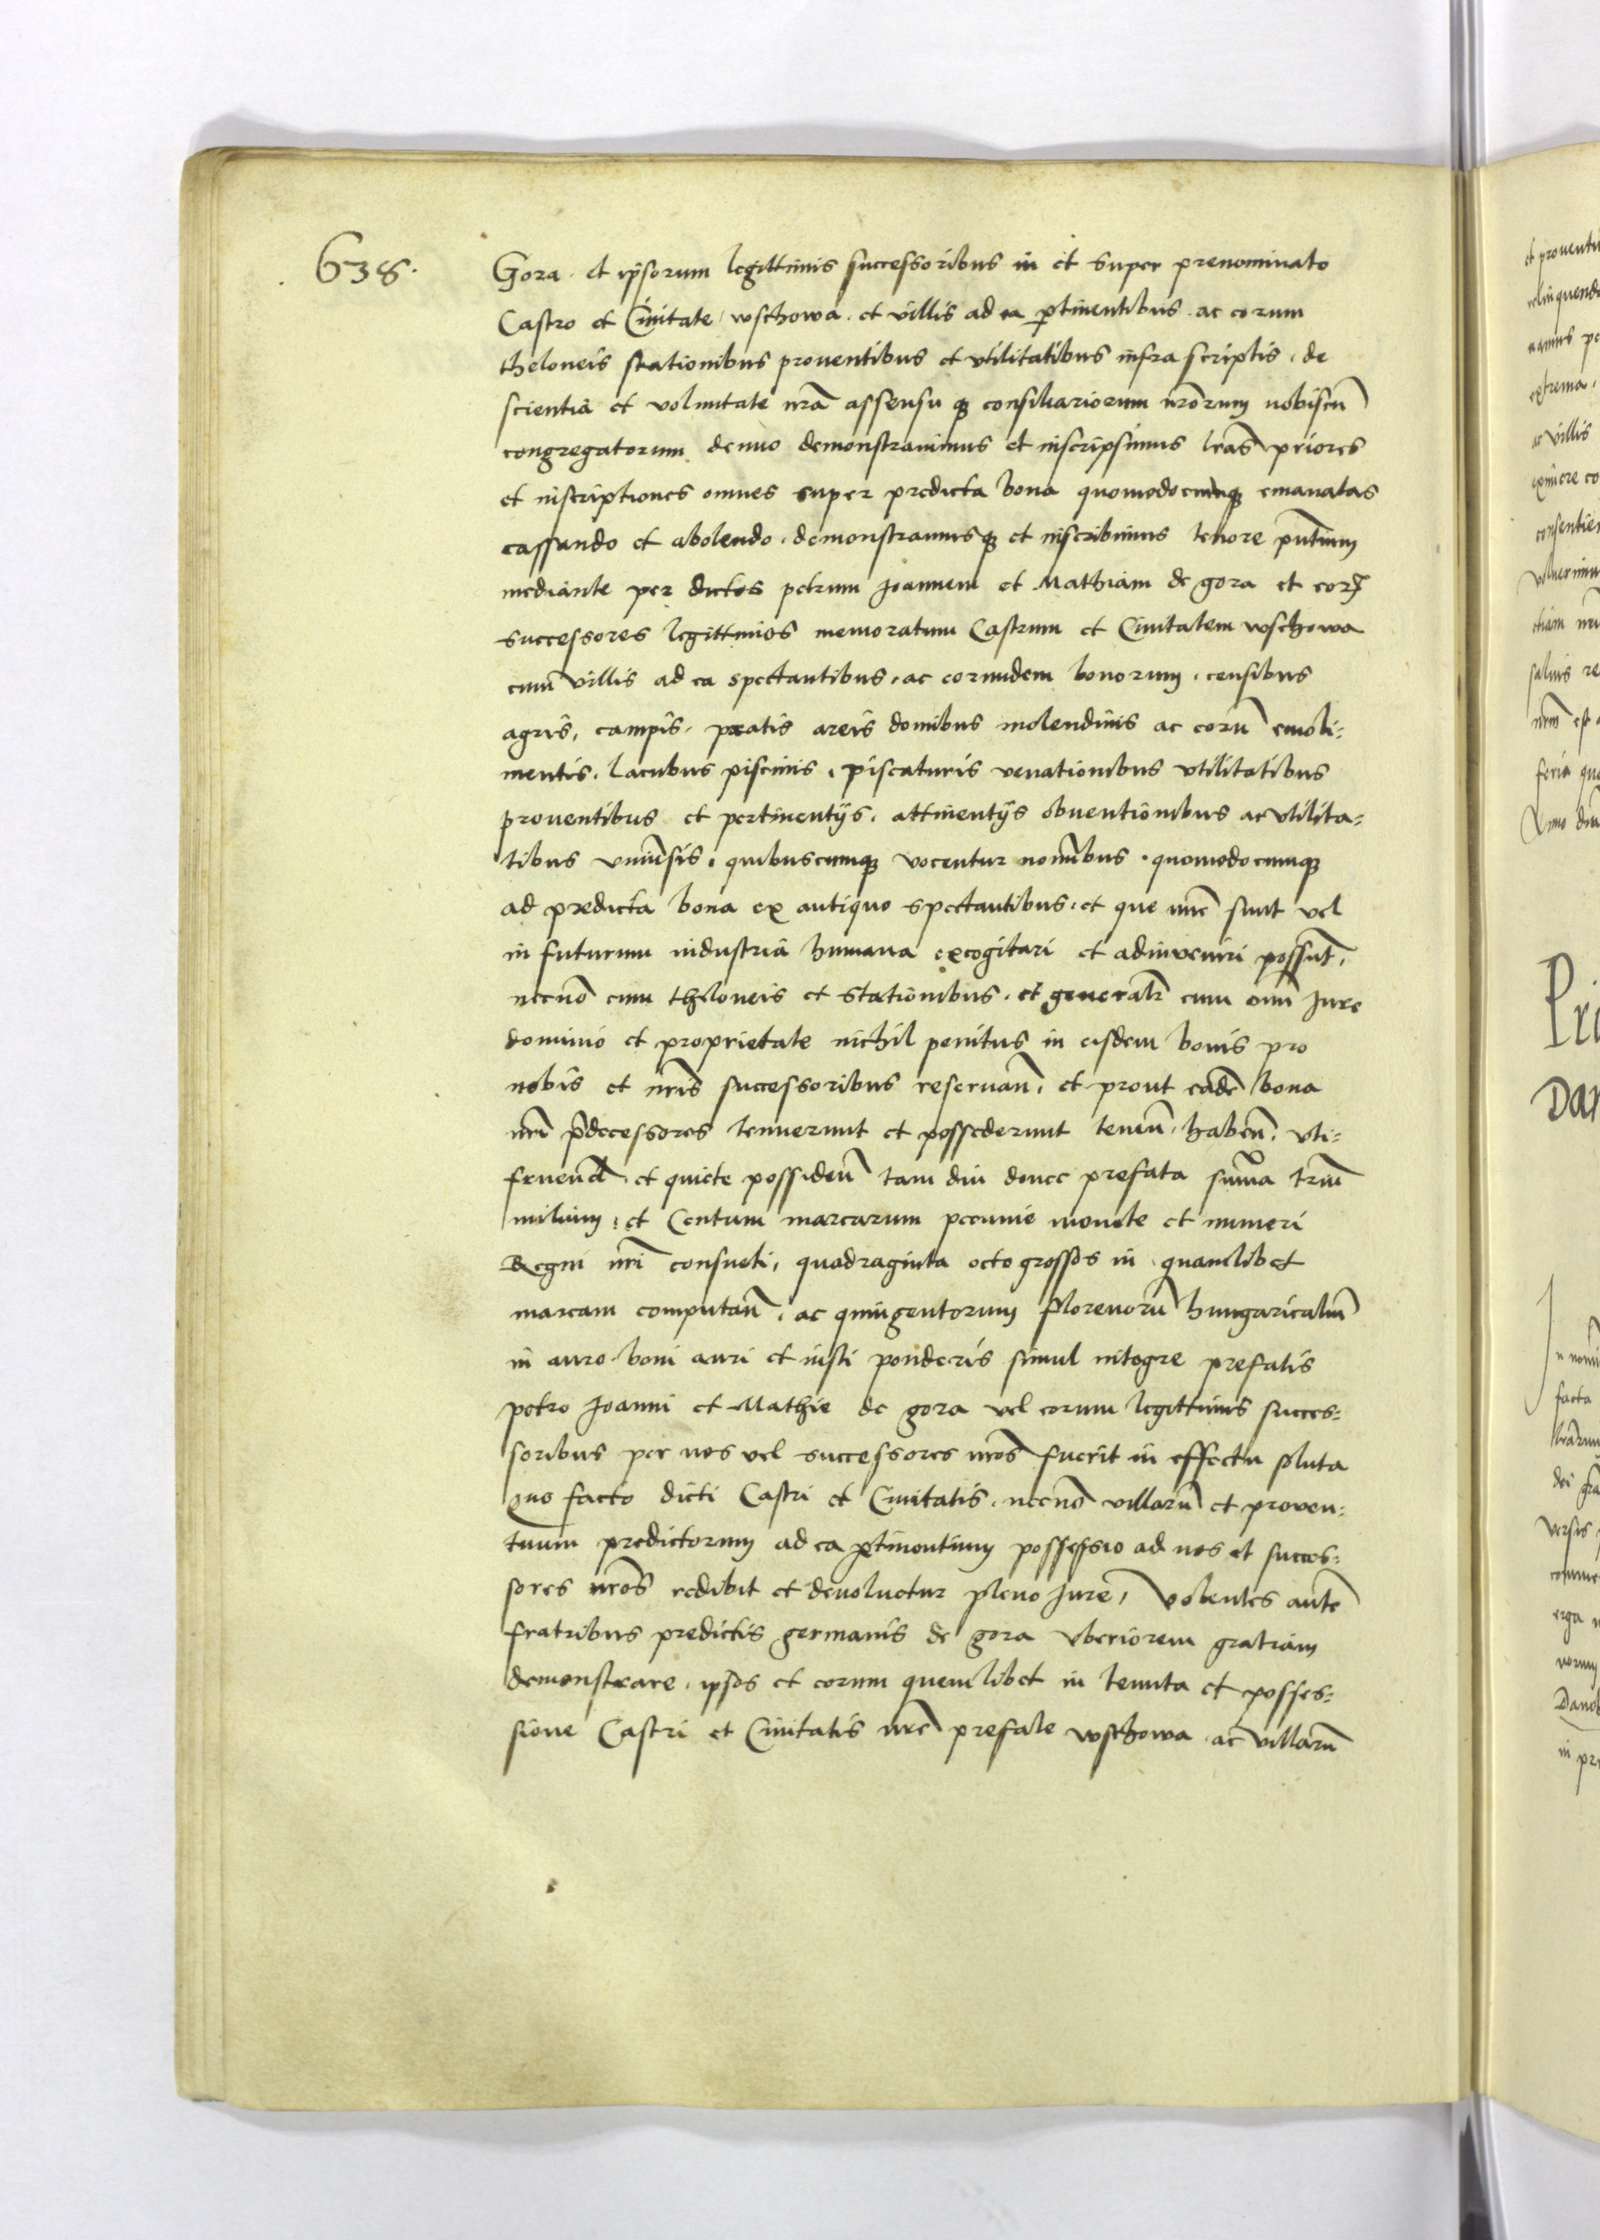 638.
Gora. et ipsorum legittimis successoribus in et super prenominato
Castro et Civitate wschowa. et villis ad ea ꝑtinentibus. ac eorum
theloneis stationibus proventibus et vtilitatibus infra scriptis. de
scientia et voluntate nr̃a assensu qꝫ consiliariorum nr̃orum nobiscũ
congregatorum denuo demonstravimus et inscripsimus lr̃as priores
et inscriptiones omnes super predicta bona quomodocunqꝫ emanatas
cassando et abolendo. demonstramusqꝫ et inscribimus tenore pñtium
mediante per dictos petrum Joannem et Mathiam de gora et eorꝝ
successores legittimos memoratum Castrum et Civitatem wschowa
cum villis ad ea spectantibus. ac eorundem bonorum. censibus
agris, campis. pratis areis domibus molendinis ac eorũ emoli-
mentis. lacubus piscinis. piscaturis venationibus vtilitatibus
proventibus et pertinentijs. attinentijs obventionibus ac vtilita-
tibus vniv̾sis. quibuscumqꝫ vocentur noĩbus. quomodocumqꝫ
ad predicta bona ex antiquo spectantibus. et que nũc sunt vel
in futurum industria humana excogitari et adinveniri possunt,
necnõ cum theloneis et stationibus. et generalr̃ cum omĩ Jure
dominio et proprietate nichil penitus in eisdem bonis pro
nobis et nr̃is successoribus reservañ. et prout eadẽ bona
nr̃i p̃decessores tenuerunt et possederunt teneñ. habeñ. vti-
frueñd. et quiete possideñ tam diu donec prefata sum̃a triũ
milium. et Centum marcarum pecunie monete et numeri
Regni nr̃i consueti, quadraginta octo grossos in quamlibet
marcam computañ. ac quingentorum florenorũ hungaricaliũ
in auro boni auri et iusti ponderis simul integre prefatis
petro Joanni et Mathie de gora vel eorum legittimis succes-
soribus per nos vel successores nr̃os fuerit in effectu soluta
Quo facto dicti Castri et Civitatis. necnõ villarũ et proven-
tuum predictorum ad ea ꝑtinentium possessio ad nos et succes-
sores nr̃os redibit et devoluetur pleno Jure, Volentes autẽ
fratribus predictis germanis de gora vberiorem gratiam
demonstrare. ipsos et eorum quemlibet in tenuta et posses-
sione Castri et Civitatis nr̃e prefate wschowa. ac villarũ